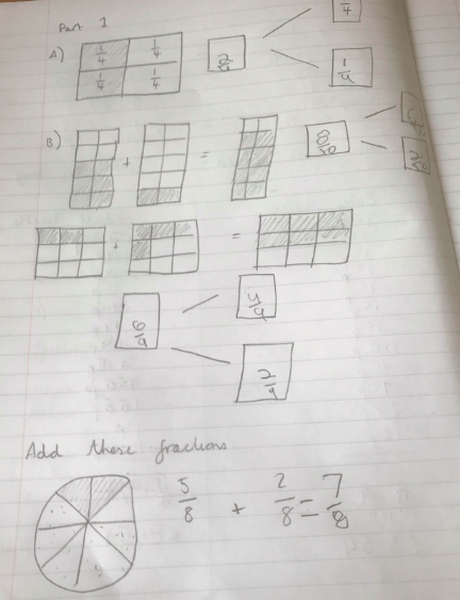 Part 1
A) 1/4 1/4 2/4 /4
1/4 1/4 1/4
B) + = 8/10 2/10
+ =
6/9 4/9
2/9
Add these fractions
5/8 + 2/8 = 7/8